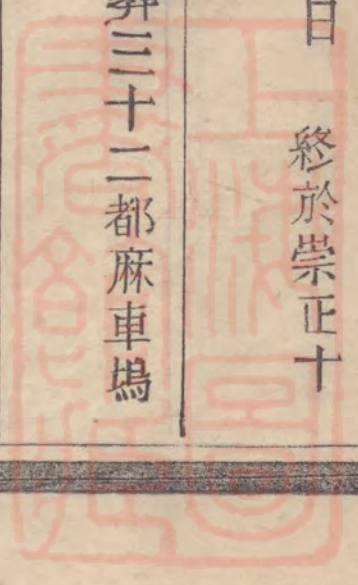 日　終於崇正十
葬三十二都麻車塢